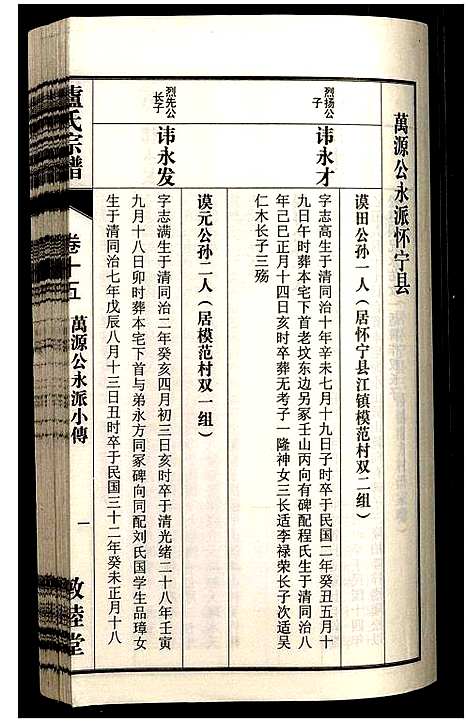 萬源公永派怀宁县
谟田公孙一人（居怀宁县江镇模范村双二组）
烈扬公
子
讳永才
字志高生于清同治十年辛未七月十九日子时卒于民国二年癸丑五月十
九日午时葬本宅下首老坟东边另冢壬山丙向有碑配程氏生于清同治八
年己巳正月十四日亥时卒葬无考子一隆神女三长适李禄荣长子次适吴
仁木长子三殇
谟元公孙二人（居模范村双一组）
烈先公
长子
讳永发
字志满生于清同治二年癸亥四月初三日亥时卒于清光绪二十八年壬寅
九月十八日卯时葬本宅下首与弟永方同冢碑向同配刘氏国学生品璋女
生于清同治七年戊辰八月十三日丑时卒于民国三十二年癸未正月十八
盧氏宗譜
卷十五
萬源公永派小傳
一
敦睦堂